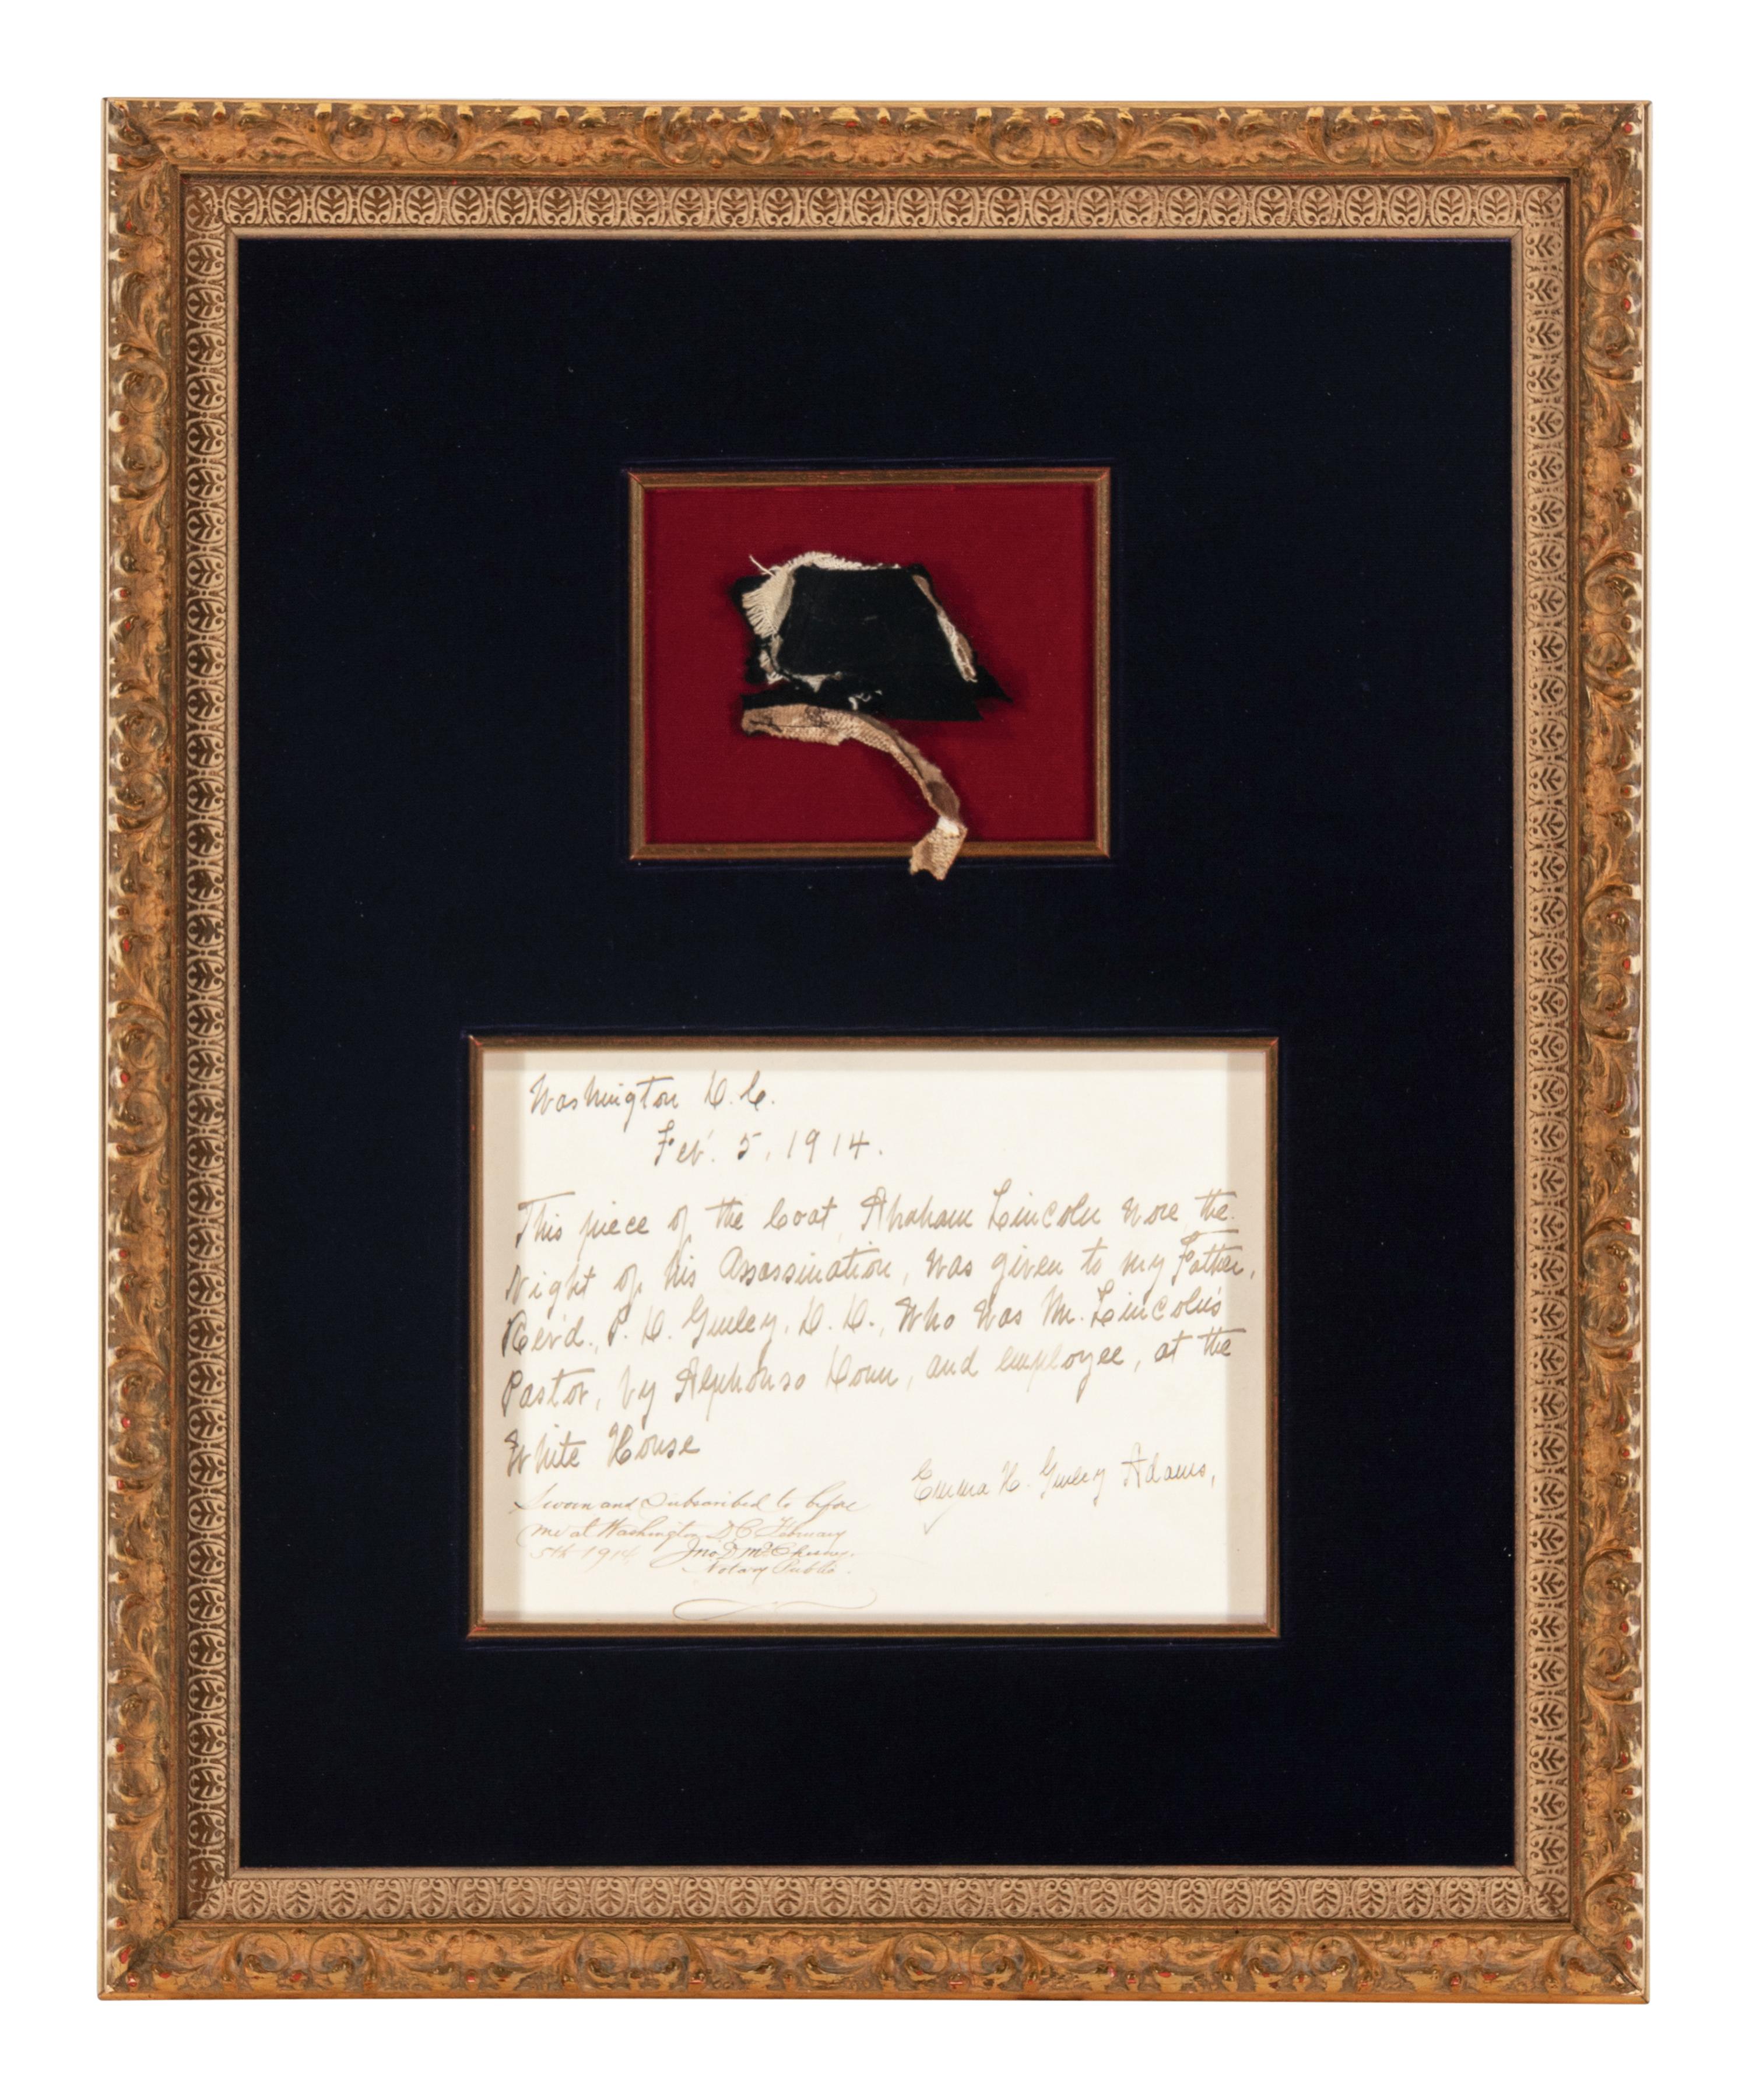 Washington D.C.
Feb. 5, 1914.
This piece of the Coat Abraham Lincoln wore the
Night of his Assassination, was given to my Father,
Rev'd., P. D. Gurley, D. D., Who was Mr. Lincoln's
Pastor, by Alphonso Donn, and employee, at the
White House
Emma H. Gurley Adams,
Sworn and Subscribed to before
me at Washington D C February
5th 1914 Jno D McChesney.
Notary Public.